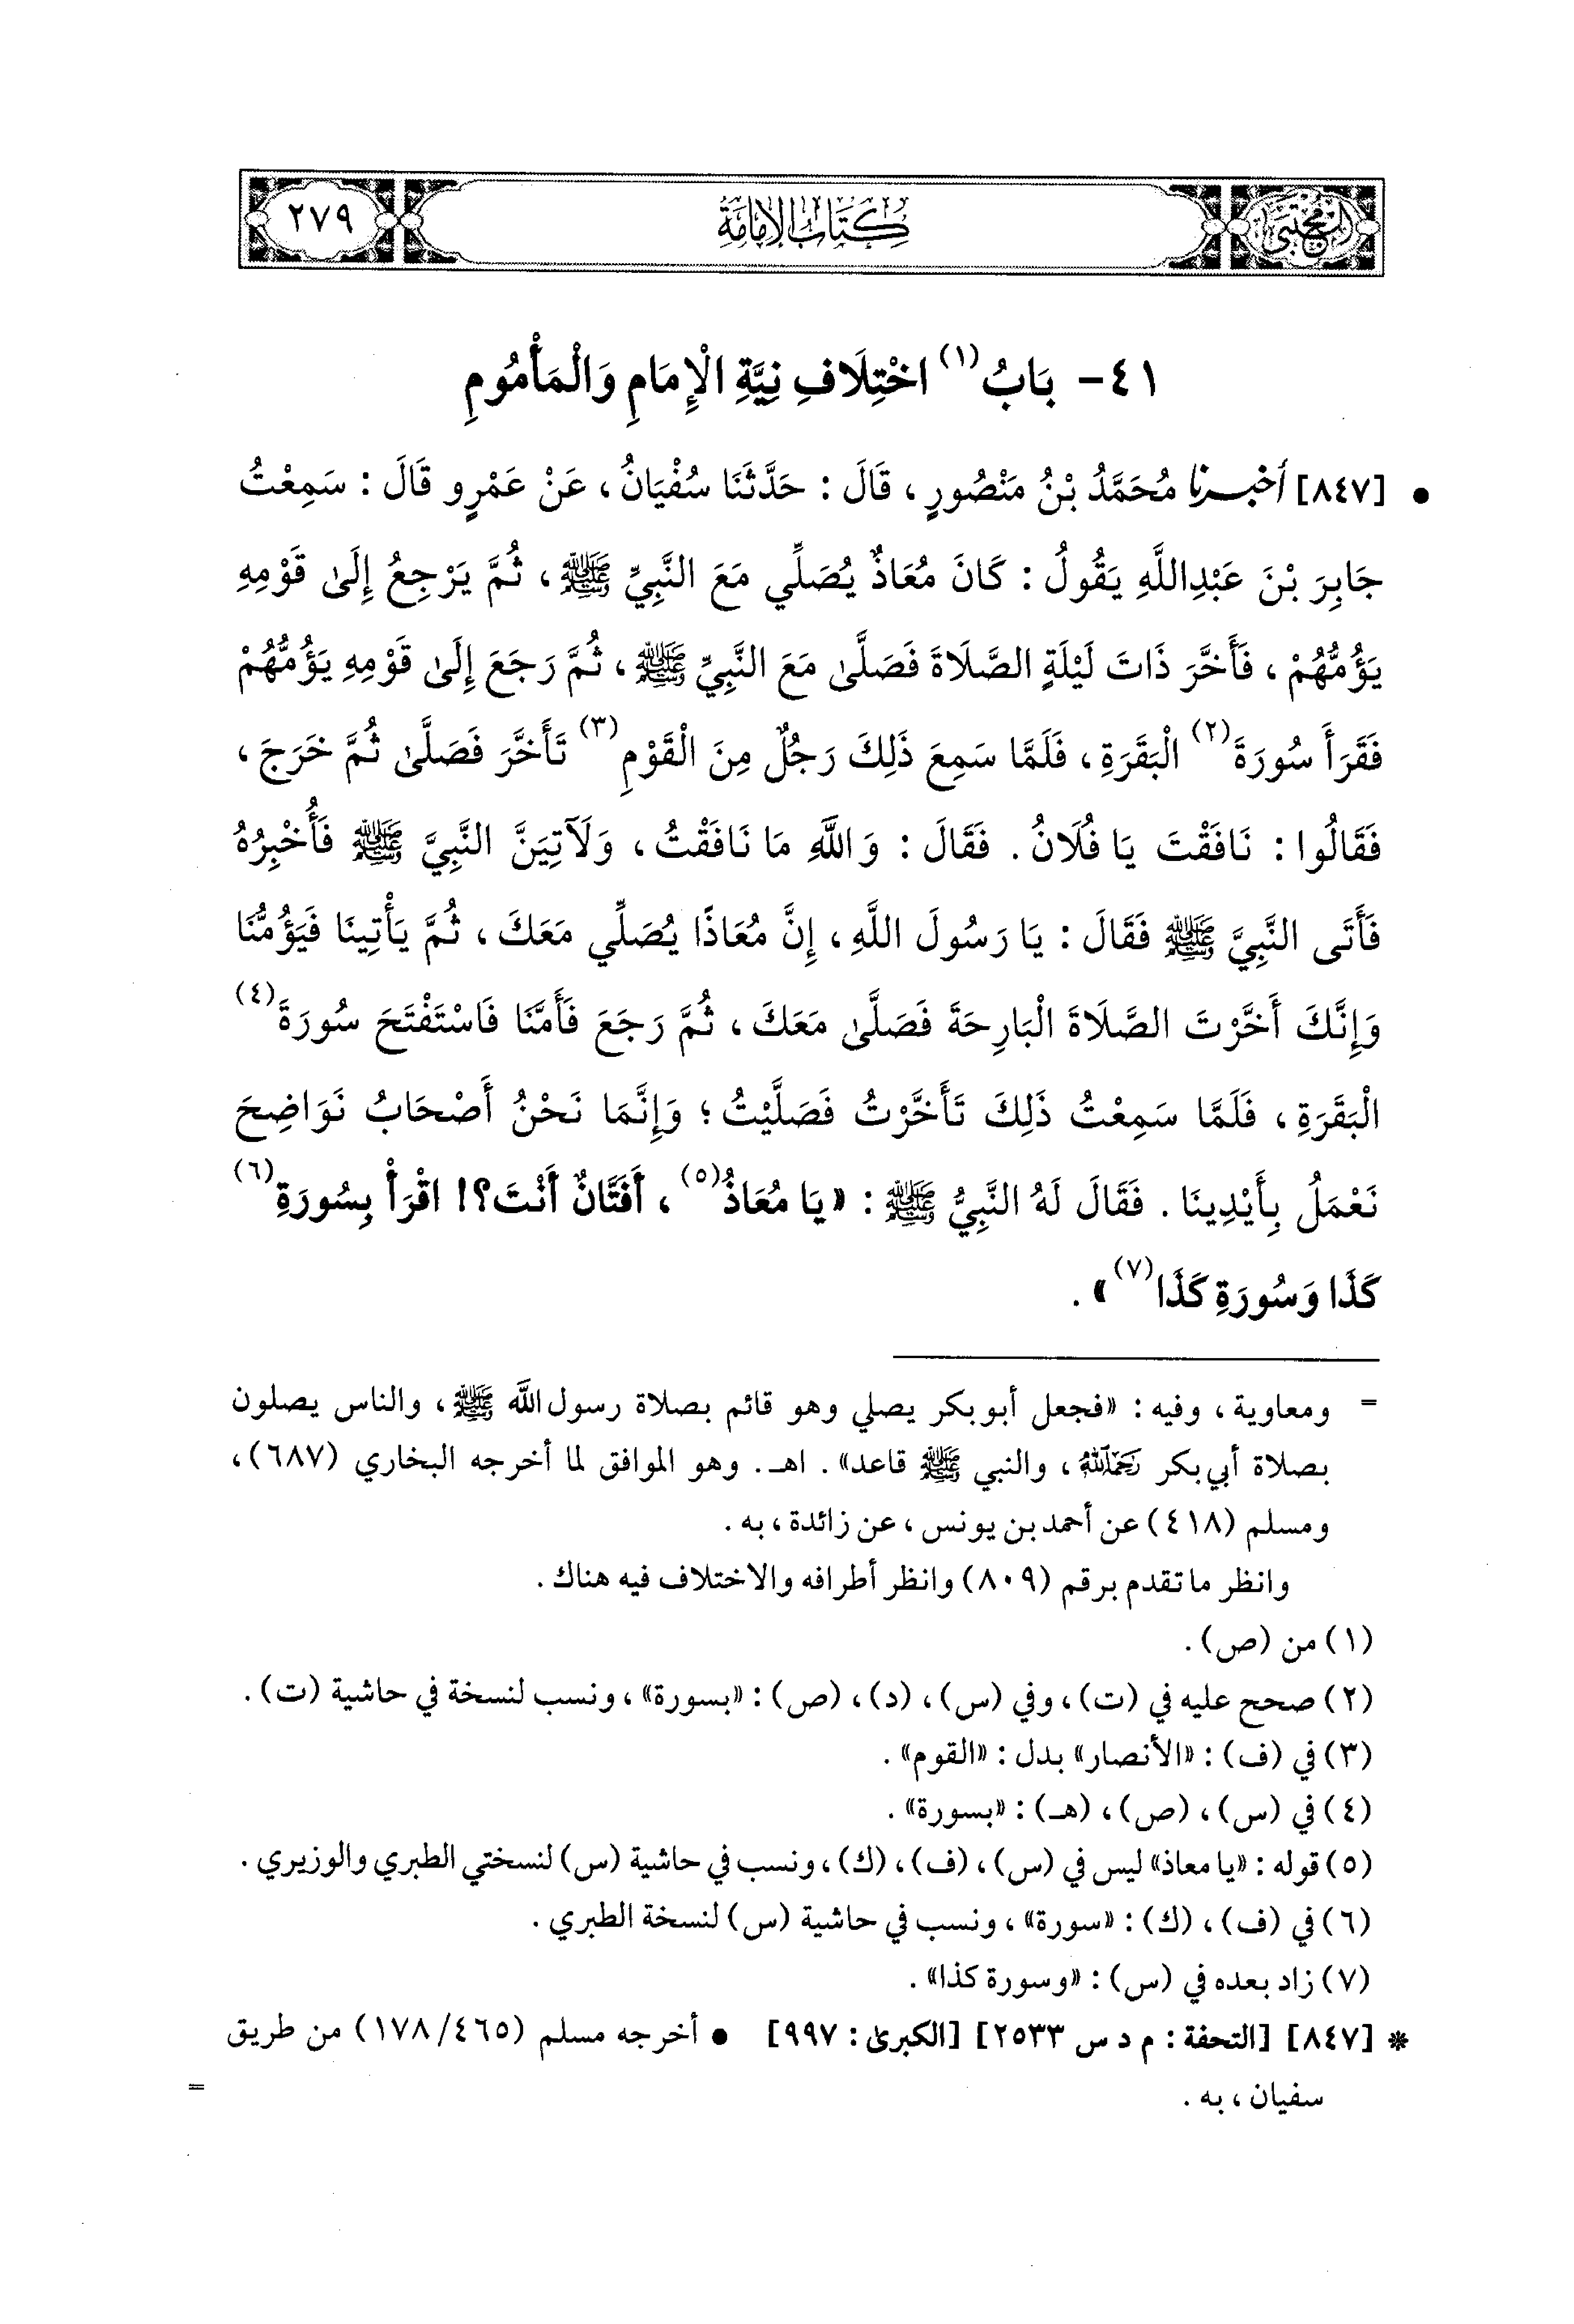 المجتبى
كتاب الإمامة
٢٧٩
٤١- بَابُ (١) اخْتِلَافِ نِيَّةِ الْإِمَامِ وَالْمَأْمُومِ
• [٨٤٧] أخبرنا مُحَمَّدُ بْنُ مَنْصُورٍ، قَالَ: حَدَّثَنَا سُفْيَانُ، عَنْ عَمْرٍو قَالَ: سَمِعْتُ
جَابِرَ بْنَ عَبْدِاللَّهِ يَقُولُ: كَانَ مُعَاذٌ يُصَلِّي مَعَ النَّبِيِّ ﷺ، ثُمَّ يَرْجِعُ إِلَىٰ قَوْمِهِ
يَؤُمُّهُمْ، فَأَخَّرَ ذَاتَ لَيْلَةٍ الصَّلَاةَ فَصَلَّىٰ مَعَ النَّبِيِّ ﷺ، ثُمَّ رَجَعَ إِلَىٰ قَوْمِهِ يَؤُمُّهُمْ
فَقَرَأَ سُورَةَ (٢) الْبَقَرَةِ، فَلَمَّا سَمِعَ ذَلِكَ رَجُلٌ مِنَ الْقَوْمِ (٣) تَأَخَّرَ فَصَلَّىٰ ثُمَّ خَرَجَ،
فَقَالُوا: نَافَقْتَ يَا فُلَانُ. فَقَالَ: وَاللَّهِ مَا نَافَقْتُ، وَلَآتِيَنَّ النَّبِيَّ ﷺ فَأُخْبِرُهُ
فَأَتَى النَّبِيَّ ﷺ فَقَالَ: يَا رَسُولَ اللَّهِ، إِنَّ مُعَاذًا يُصَلِّي مَعَكَ، ثُمَّ يَأْتِينَا فَيَؤُمُّنَا
وَإِنَّكَ أَخَّرْتَ الصَّلَاةَ الْبَارِحَةَ فَصَلَّىٰ مَعَكَ، ثُمَّ رَجَعَ فَأَمَّنَا فَاسْتَفْتَحَ سُورَةَ (٤)
الْبَقَرَةِ، فَلَمَّا سَمِعْتُ ذَلِكَ تَأَخَّرْتُ فَصَلَّيْتُ؛ وَإِنَّمَا نَحْنُ أَصْحَابُ نَوَاضِحَ
نَعْمَلُ بِأَيْدِينَا. فَقَالَ لَهُ النَّبِيُّ ﷺ: «يَا مُعَاذُ (٥)، أَفَتَّانٌ أَنْتَ؟! اقْرَأْ بِسُورَةِ (٦)
كَذَا وَسُورَةِ كَذَا (٧)».
= ومعاوية، وفيه: «فجعل أبو بكر يصلي وهو قائم بصلاة رسول الله ﷺ، والناس يصلون
بصلاة أبي بكر رَحِمَهُ اللَّهُ، والنبي ﷺ قاعد». اهـ. وهو الموافق لما أخرجه البخاري (٦٨٧)،
ومسلم (٤١٨) عن أحمد بن يونس، عن زائدة، به.
وانظر ما تقدم برقم (٨٠٩) وانظر أطرافه والاختلاف فيه هناك.
(١) من (ص).
(٢) صحح عليه في (ت)، وفي (س)، (د)، (ص): «بسورة»، ونسب لنسخة في حاشية (ت).
(٣) في (ف): «الأنصار» بدل: «القوم».
(٤) في (س)، (ص)، (هـ): «بسورة».
(٥) قوله: «يا معاذ» ليس في (س)، (ف)، (ك)، ونسب في حاشية (س) لنسختي الطبري والوزيري.
(٦) في (ف)، (ك): «سورة»، ونسب في حاشية (س) لنسخة الطبري.
(٧) زاد بعده في (س): «وسورة كذا».
* [٨٤٧] [التحفة: م د س ٢٥٣٣] [الكبرىٰ: ٩٩٧] • أخرجه مسلم (١٧٨/٤٦٥) من طريق
سفيان، به.
=